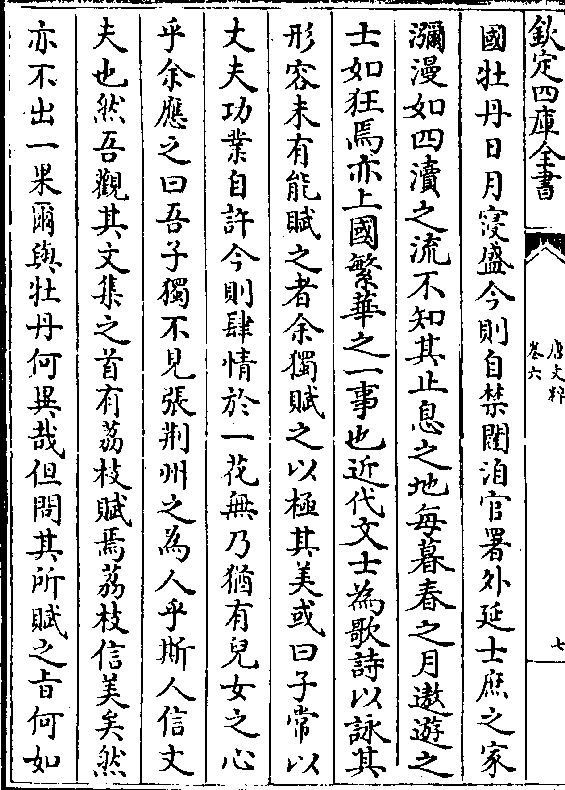 欽定四庫全書
唐文粹
卷六
七
國牡丹日月寖盛今則自禁闥洎官署外延士庶之家
瀰漫如四瀆之流不知其止息之地每暮春之月遨遊之
士如狂焉亦上國繁華之一事也近代文士為歌詩以詠其
形容未有能賦之者余獨賦之以極其美或曰子常以
丈夫功業自許今則肆情於一花無乃猶有兒女之心
乎余應之曰吾子獨不見張荆州之為人乎斯人信丈
夫也然吾觀其文集之首有荔枝賦焉荔枝信美矣然
亦不出一果爾與牡丹何異哉但問其所賦之㫖何如